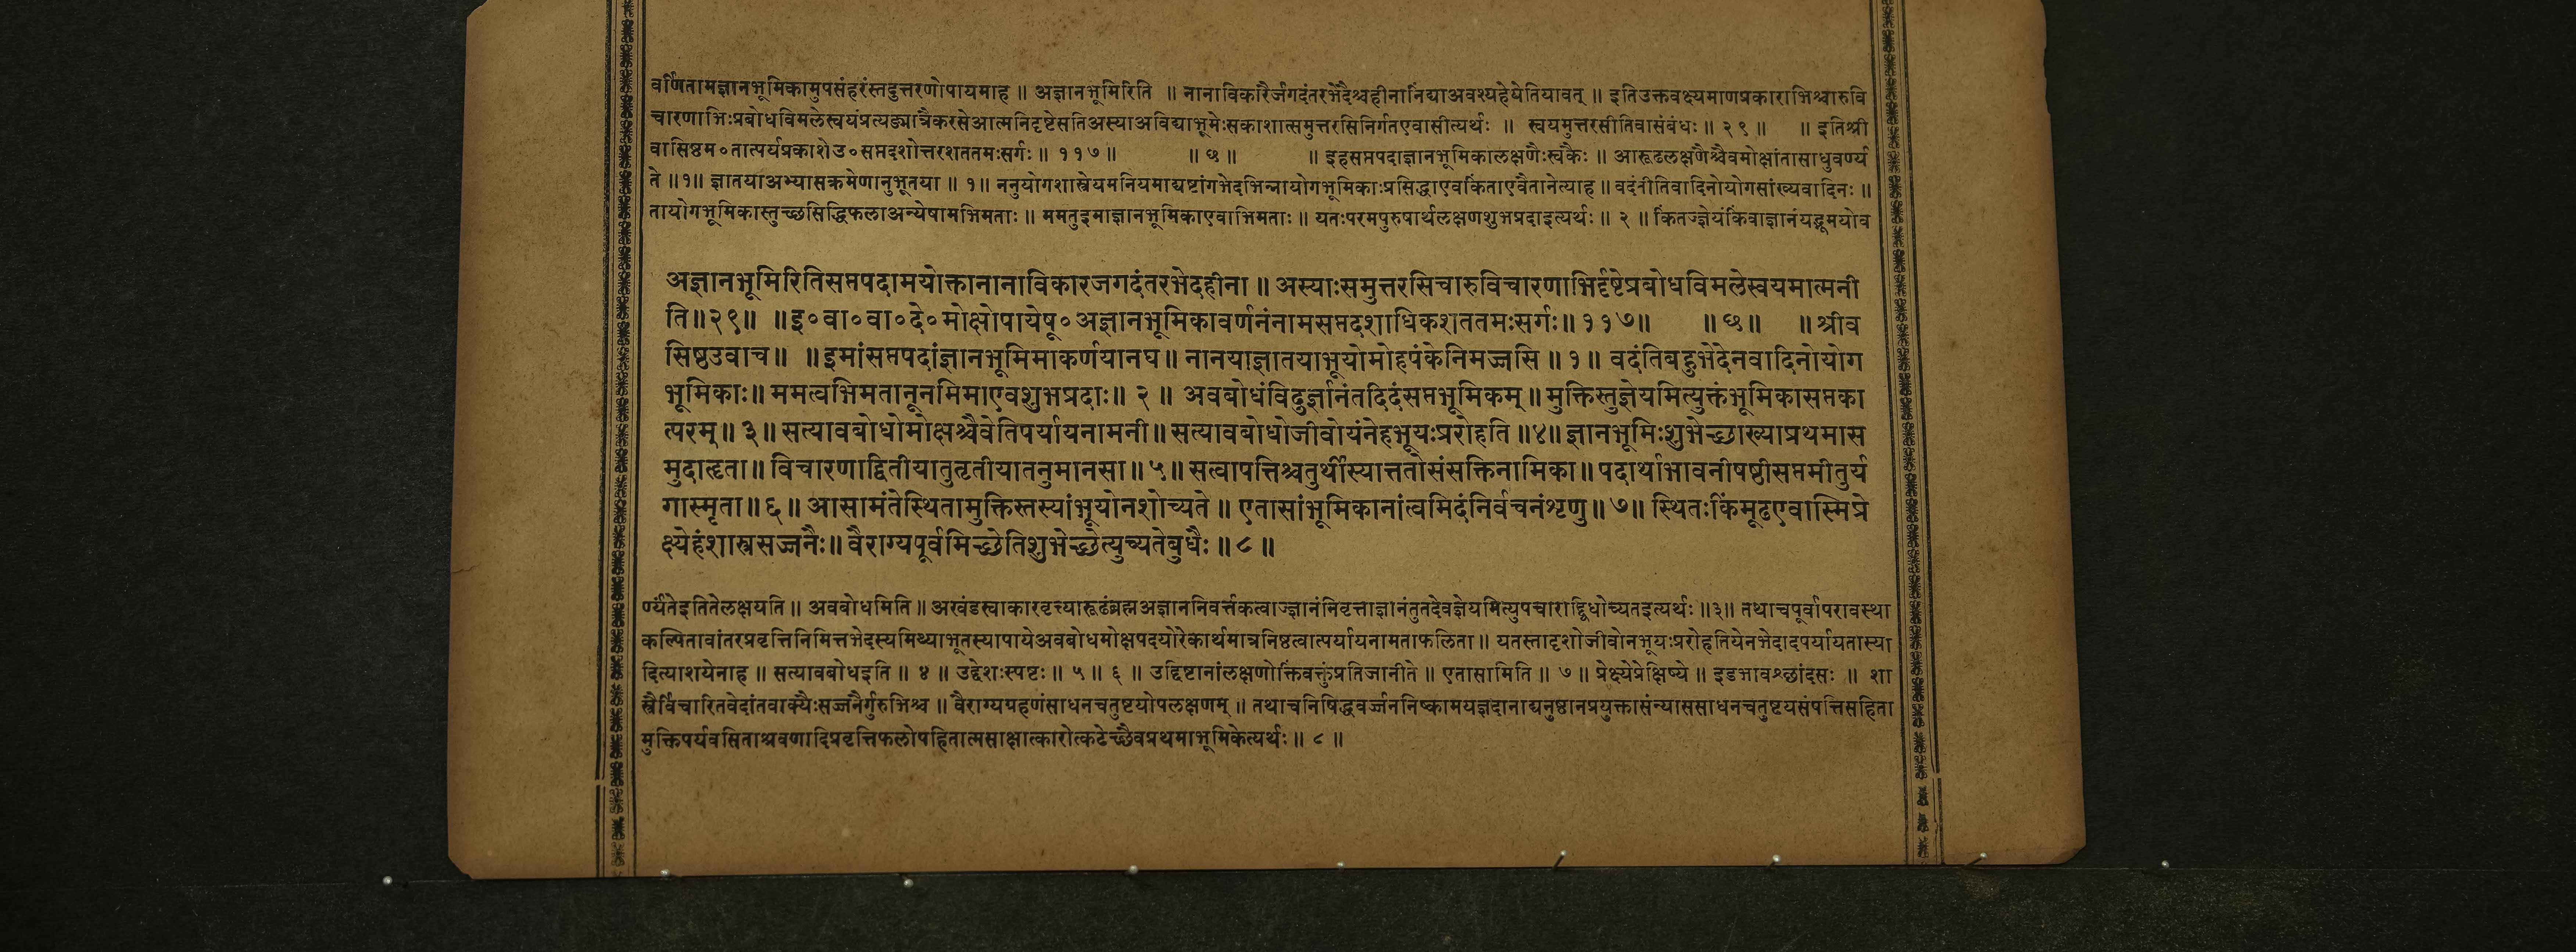 वर्णितामज्ञानभूमिकामुपसंहरंस्तदुत्तरणोपायमाह ॥ अज्ञानभूमिरिति ॥ नानाविकारैर्जगदंतरभेदैश्चहीनानिंद्याअवश्यहेयेतियावत् ॥ इतिउक्तवक्ष्यमाणप्रकाराभिश्चारुवि
चारणाभिःप्रबोधविमलेस्वयंप्रत्यङ्मात्रैकरसेआत्मनिदृष्टेसतिअस्याअविद्याभूमेःसकाशात्समुत्तरसिनिर्गतएवासीत्यर्थः ॥ स्वयमुत्तरसीतिवासंबंधः ॥ २९ ॥ ॥ इतिश्री
वासिष्ठम०तात्पर्यप्रकाशेउ०सप्तदशोत्तरशततमःसर्गः ॥ ११७ ॥ ॥ छ ॥ ॥ इहसप्तपदाज्ञानभूमिकालक्षणैःस्वकैः ॥ आरूढलक्षणैश्चैवमोक्षांतासाधुवर्ण्य
ते ॥१॥ ज्ञातयाअभ्यासक्रमेणानुभूतया ॥ १॥ ननुयोगशास्त्रेयमनियमाद्यष्टांगभेदभिन्नायोगभूमिकाःप्रसिद्धाएवकिंताएवैतानेत्याह ॥ वदंतीतिवादिनोयोगसांख्यवादिनः ॥
तायोगभूमिकास्तुच्छसिद्धिफलाअन्येषामभिमताः ॥ ममतुइमाज्ञानभूमिकाएवाभिमताः ॥ यतःपरमपुरुषार्थलक्षणशुभप्रदाइत्यर्थः ॥ २ ॥ किंतज्ज्ञेयंकिंवाज्ञानंयद्भूमयोव
अज्ञानभूमिरितिसप्तपदामयोक्तानानाविकारजगदंतरभेदहीना ॥ अस्याःसमुत्तरसिचारुविचारणाभिर्दृष्टेप्रबोधविमलेस्वयमात्मनी
ति॥२९॥ ॥इ०वा०वा०दे०मोक्षोपायेषू०अज्ञानभूमिकावर्णनंनामसप्तदशाधिकशततमःसर्गः॥११७॥ ॥छ॥ ॥श्रीव
सिष्ठउवाच॥ ॥इमांसप्तपदांज्ञानभूमिमाकर्णयानघ॥ नानयाज्ञातयाभूयोमोहपंकेनिमज्जसि ॥ १॥ वदंतिबहुभेदेनवादिनोयोग
भूमिकाः॥ ममत्वभिमतानूनमिमाएवशुभप्रदाः॥ २ ॥ अवबोधंविदुर्ज्ञानंतदिदंसप्तभूमिकम्॥ मुक्तिस्तुज्ञेयमित्युक्तंभूमिकासप्तका
त्परम्॥ ३॥ सत्यावबोधोमोक्षश्चैवेतिपर्यायनामनी॥ सत्यावबोधोजीवोयंनेहभूयःप्ररोहति ॥४॥ ज्ञानभूमिःशुभेच्छाख्याप्रथमास
मुदाहृता॥ विचारणाद्वितीयातुतृतीयातनुमानसा॥ ५॥ सत्वापत्तिश्चतुर्थीस्यात्ततोसंसक्तिनामिका॥ पदार्थाभावनीषष्ठीसप्तमीतुर्य
गास्मृता॥ ६॥ आसामंतेस्थितामुक्तिस्तस्यांभूयोनशोच्यते ॥ एतासांभूमिकानांत्वमिदंनिर्वचनंशृणु॥ ७॥ स्थितःकिंमूढएवास्मिप्रे
क्ष्येहंशास्त्रसज्जनैः॥ वैराग्यपूर्वमिच्छेतिशुभेच्छेत्युच्यतेबुधैः ॥ ८ ॥
र्ण्यतेइतितेलक्षयति ॥ अवबोधमिति ॥ अखंडस्वाकारवृत्त्यारूढंब्रह्मअज्ञाननिवर्त्तकत्वाज्ज्ञानंनिवृत्ताज्ञानंतुतदेवज्ञेयमित्युपचाराद्द्विधोच्यतइत्यर्थः ॥३॥ तथाचपूर्वापरावस्था
कल्पितावांतरप्रवृत्तिनिमित्तभेदस्यमिथ्याभूतस्यापायेअवबोधमोक्षपदयोरेकार्थमात्रनिष्ठत्वात्पर्यायनामताफलिता ॥ यतस्तादृशोजीवोनभूयःप्ररोहतियेनभेदादपर्यायतास्या
दित्याशयेनाह ॥ सत्यावबोधइति ॥ ४ ॥ उद्देशःस्पष्टः ॥ ५ ॥ ६ ॥ उद्दिष्टानांलक्षणोक्तिंवक्तुंप्रतिजानीते ॥ एतासामिति ॥ ७ ॥ प्रेक्ष्येप्रेक्षिष्ये ॥ इडभावश्छांदसः ॥ शा
स्त्रैर्विचारितवेदांतवाक्यैःसज्जनैर्गुरुभिश्च ॥ वैराग्यग्रहणंसाधनचतुष्टयोपलक्षणम् ॥ तथाचनिषिद्धवर्ज्जननिष्कामयज्ञदानाद्यनुष्ठानप्रयुक्तासंन्याससाधनचतुष्टयसंपत्तिसहिता
मुक्तिपर्यवसिताश्रवणादिप्रवृत्तिफलोपहितात्मसाक्षात्कारोत्कटेच्छैवप्रथमाभूमिकेत्यर्थः ॥ ८ ॥